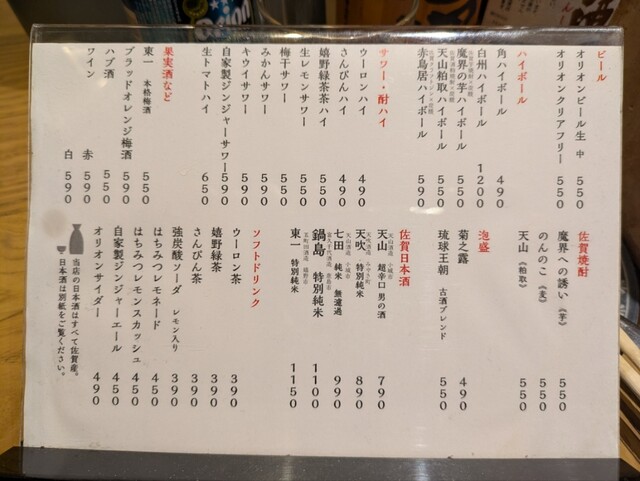 ビール
オリオンビール生 中 550
オリオンクリアフリー 550
ハイボール
角ハイボール 490
白州ハイボール 1200
魔界の芋ハイボール 550
天山粕取ハイボール 550
赤鳥居ハイボール 590
サワー・酎ハイ
ウーロンハイ 490
さんぴんハイ 490
嬉野緑茶茶ハイ 550
生レモンサワー 550
梅干サワー 550
みかんサワー 590
キウイサワー 590
自家製ジンジャーサワー 590
生トマトハイ 650
果実酒など
東一 本格梅酒 550
ブラッドオレンジ梅酒 590
ハブ酒 550
ワイン 赤 590
白 590
佐賀焼酎
魔界への誘い (芋) 550
のんのこ (麦) 550
天山 (粕取) 550
泡盛
菊之露 490
琉球王朝 古酒ブレンド 550
佐賀日本酒
天山 超辛口 男の酒 790
天吹 特別純米 890
七田 純米 無濾過 990
鍋島 特別純米 1100
東一 特別純米 1150
ソフトドリンク
ウーロン茶 390
嬉野緑茶 390
さんぴん茶 390
強炭酸ソーダ レモン入り 390
はちみつレモネード 450
はちみつレモンスカッシュ 450
自家製ジンジャーエール 450
オリオンサイダー 490
当店の日本酒はすべて佐賀産。
日本酒は別紙をご覧ください。